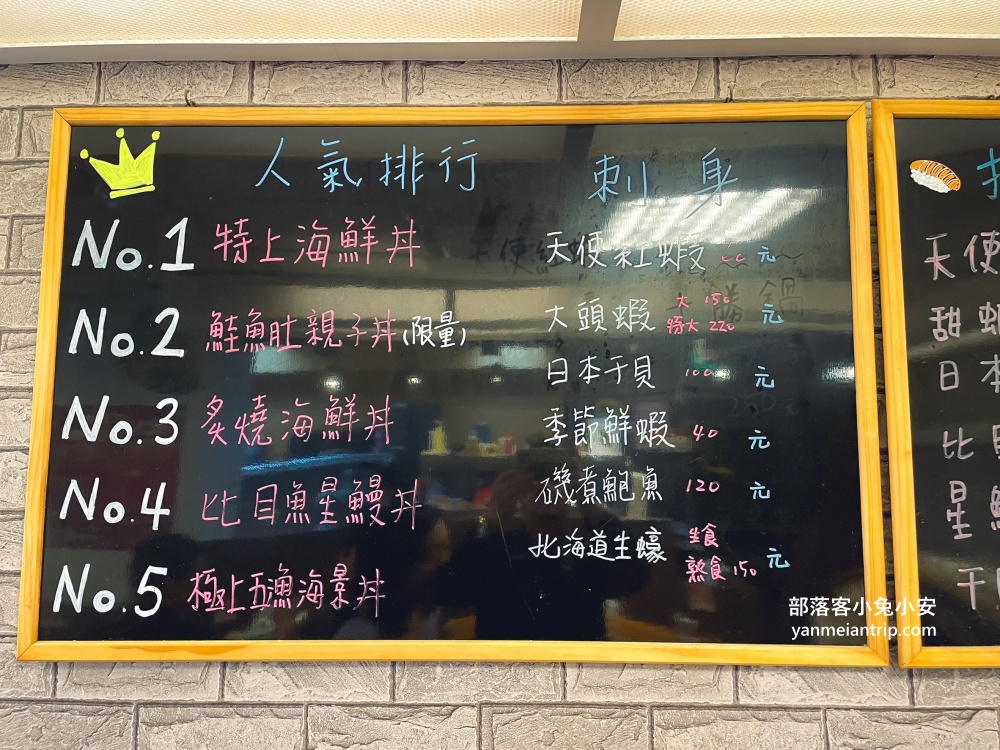 人氣排行
No.1 特上海鮮丼
No.2 鮭魚肚親子丼(限量)
No.3 炙燒海鮮丼
No.4 比目魚星鰻丼
No.5 極上五漁海景丼
刺身
天使紅蝦 元
大頭蝦 大 150 特大 220 元
日本干貝 100 元
季節鮮蝦 40 元
磯煮鮑魚 120 元
北海道生蠔 生食 熟食 150 元
天使
甜
日本
比
星
干
部落客小兔小安
yanmeiantrip.com